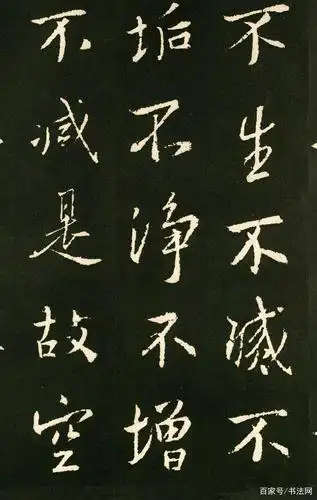 不生不滅不
垢不净不增
不减是故空
百家号/书法网